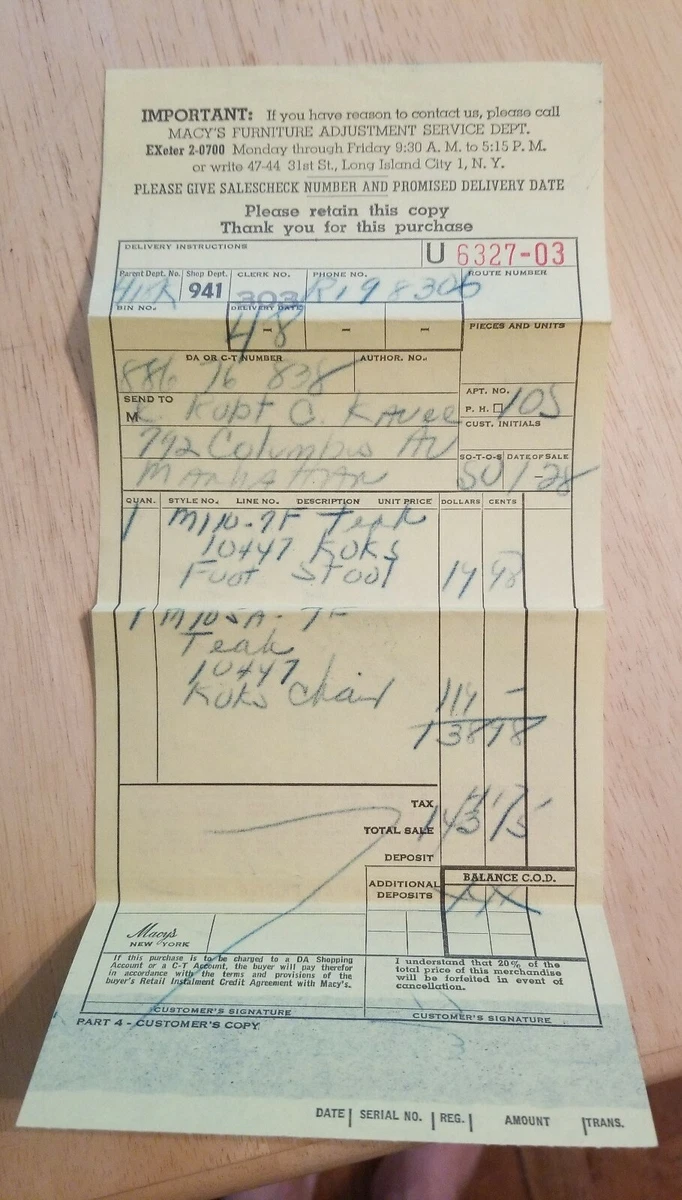 IMPORTANT: If you have reason to contact us, please call
MACY'S FURNITURE ADJUSTMENT SERVICE DEPT.
EXeter 2-0700 Monday through Friday 9:30 A. M. to 5:15 P. M.
or write 47-44 31st St., Long Island City 1, N. Y.
PLEASE GIVE SALESCHECK NUMBER AND PROMISED DELIVERY DATE
Please retain this copy
Thank you for this purchase
DELIVERY INSTRUCTIONS
U 6327-03
Parent Dept. No. Shop Dept. CLERK NO. PHONE NO. ROUTE NUMBER
941 303 RI 9 8306
BIN NO. DELIVERY DATE
48 - - PIECES AND UNITS
DA OR C-T NUMBER AUTHOR. NO.
886 76 838
APT. NO.
SEND TO
P. H. 105
M Kurt C Kauee
CUST. INITIALS
792 Columbus AV
SO-T-O-S DATE OF SALE
MANHATTAN 1-28
QUAN. STYLE NO. LINE NO. DESCRIPTION UNIT PRICE DOLLARS CENTS
1 M110-7F Teak
10447 KOKS
Foot Stool
1 M105A-7F
Teak
10447
KOKS Chair
138 98
TAX
TOTAL SALE 143 15
DEPOSIT
BALANCE C.O.D.
ADDITIONAL
DEPOSITS XXX
Macy's
NEW YORK
If this purchase is to be charged to a DA Shopping
Account or a C-T Account, the buyer will pay therefor
in accordance with the terms and provisions of the
buyer's Retail Instalment Credit Agreement with Macy's.
I understand that 20% of the
total price of this merchandise
will be forfeited in event of
cancellation.
CUSTOMER'S SIGNATURE CUSTOMER'S SIGNATURE
PART 4 - CUSTOMER'S COPY
DATE SERIAL NO. REG. AMOUNT TRANS.